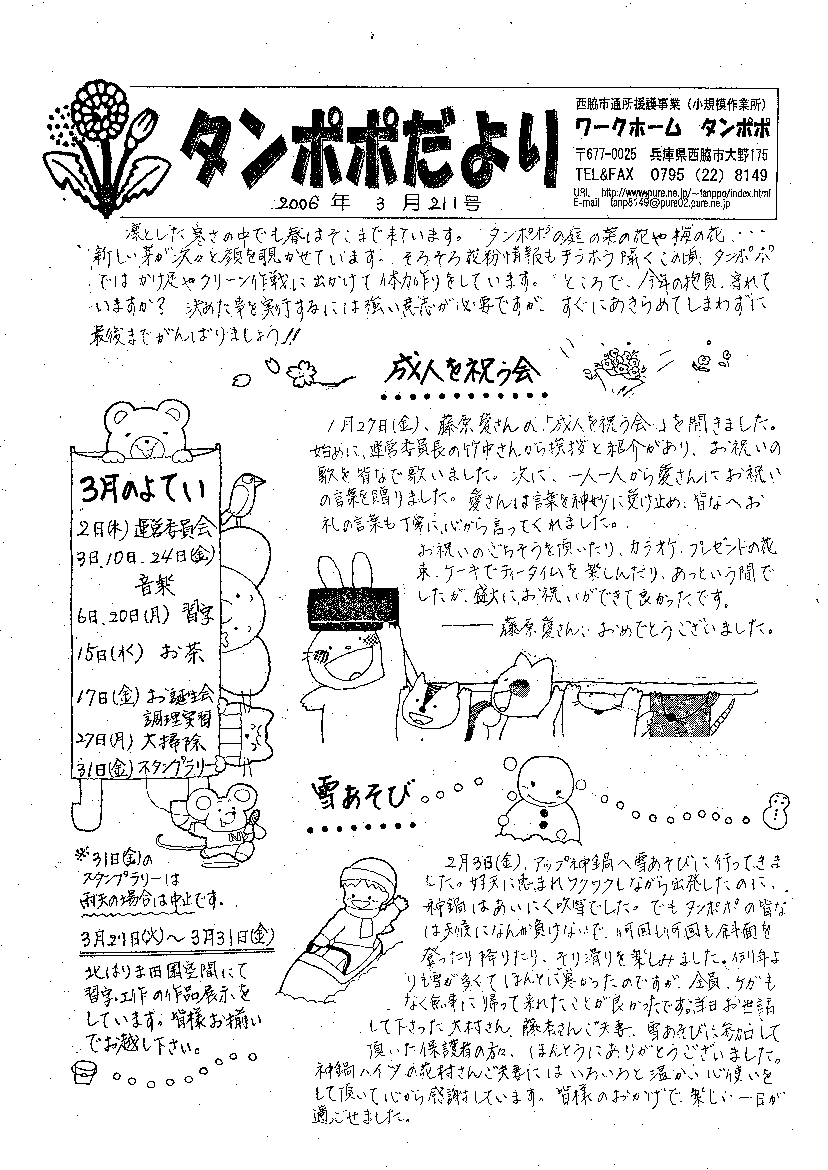 タンポポだより
2006年 3月 211号
西脇市通所援護事業（小規模作業所）
ワークホーム タンポポ
〒677-0025 兵庫県西脇市大野175
TEL&FAX 0795（22）8149
URL http://www.pure.ne.jp/~tanppo/index.html
E-mail tanp8149@pure02.pure.ne.jp
凛とした寒さの中でも春はそこまで来ています。 タンポポの庭の菜の花や梅の花、・・・
新しい芽が次々と顔を覗かせています。そろそろ花粉情報もチラホラ聞くこの頃、タンポポ
ではかけ足やクリーン作戦に出かけて体力作りをしています。 ところで、今年の抱負、守れて
いますか？ 決めた事を実行するには強い意志が必要ですが、すぐにあきらめてしまわずに
最後までがんばりましょう!!
成人を祝う会
1月27日(金)、藤原愛さんの「成人を祝う会」を開きました。
始めに、運営委員長の竹中さんから挨拶と紹介があり、お祝いの
歌を皆なで歌いました。次に、一人一人から愛さんにお祝い
の言葉を贈りました。愛さんは言葉を神妙に受け止め、皆なへお
礼の言葉も丁寧に、心から言ってくれました。
お祝いのごちそうを頂いたり、カラオケ、プレゼントの花
束、ケーキでティータイムを楽しんだり、あっという間で
したが、盛大にお祝いができて良かったです。
―― 藤原愛さん、おめでとうございました。
3月のよてい
2日(木) 運営委員会
3日、10日、24日(金)
音楽
6日、20日(月) 習字
15日(水) お茶
17日(金) お誕生会
調理実習
27日(月) 大掃除
31日(金) スタンプラリー
※31日(金)の
スタンプラリーは
雨天の場合は中止です。
3月27日(火)～3月31日(金)
北はりま田園空間にて
習字、工作の作品展示を
しています。皆様お揃い
でお越し下さい。
雪あそび
2月3日(金)、アップ神鍋へ雪あそびに行ってきま
した。好天に恵まれワクワクしながら出発したのに、
神鍋はあいにく吹雪でした。でもタンポポの皆な
は天候になんか負けないで、何回も何回も斜面を
登ったり降りたり、そり滑りを楽しみました。例年よ
りも雪が多くてほんとに寒かったのですが、全員、ケガも
なく無事に帰って来れたことが良かったです。当日お世話
して下さった大村さん、藤本さんご夫妻、雪あそびに参加して
頂いた保護者の方々、ほんとうにありがとうございました。
神鍋ハイツの花村さんご夫妻にはいろいろと温かい心使いを
して頂いて心から感謝しています。皆様のおかげで、楽しい一日が
過ごせました。